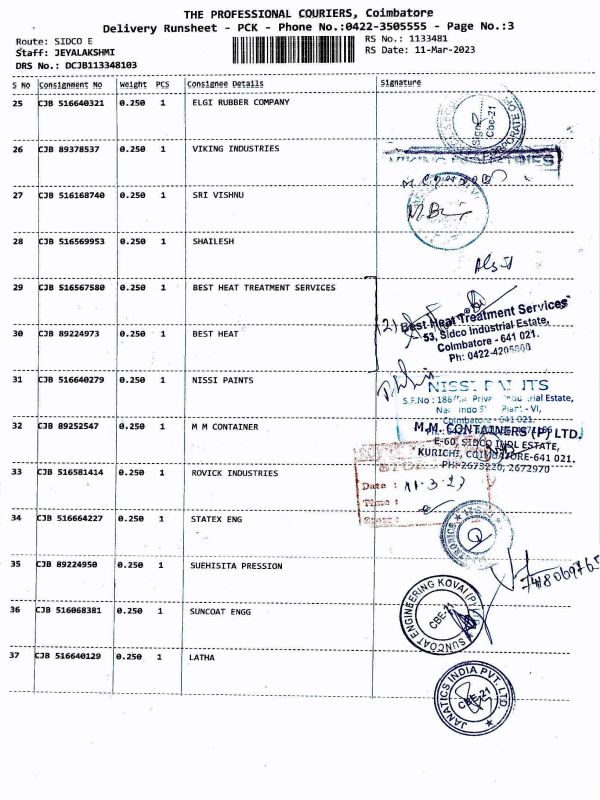 THE PROFESSIONAL COURIERS, Coimbatore
Delivery Runsheet - PCK - Phone No.:0422-3505555 - Page No.:3
Route: SIDCO E
Staff: JEYALAKSHMI
DRS No.: DCJB113348103
RS No.: 1133481
RS Date: 11-Mar-2023
S No Consignment No Weight PCS Consignee Details Signature
25 CJB 516640321 0.250 1 ELGI RUBBER COMPANY
Cbe-21
26 CJB 89378537 0.250 1 VIKING INDUSTRIES
VIKING INDUSTRIES
27 CJB 516168740 0.250 1 SRI VISHNU
28 CJB 516569953 0.250 1 SHAILESH
29 CJB 516567580 0.250 1 BEST HEAT TREATMENT SERVICES
(2) Best Heat Treatment Services
53, Sidco Industrial Estate,
30 CJB 89224973 0.250 1 BEST HEAT
Coimbatore - 641 021.
Ph: 0422-4205860
31 CJB 516640279 0.250 1 NISSI PAINTS
NISSI PAINTS
Estate,
- VI,
Coimbatore - 641 021.
32 CJB 89252547 0.250 1 M M CONTAINER
M.M. CONTAINERS (P) LTD.
E-60, SIDCO INDL ESTATE,
KURICHI, COIMBATORE-641 021.
PH: 2673220, 2672970
33 CJB 516581414 0.250 1 ROVICK INDUSTRIES
Date : 11-3-23
Time :
34 CJB 516664227 0.250 1 STATEX ENG
35 CJB 89224950 0.250 1 SUEHISITA PRESSION
36 CJB 516068381 0.250 1 SUNCOAT ENGG
SUNCOAT ENGINEERING KOVAI (P)
CBE-21
37 CJB 516640129 0.250 1 LATHA
JANATICS INDIA PVT. LTD.
CBE-21